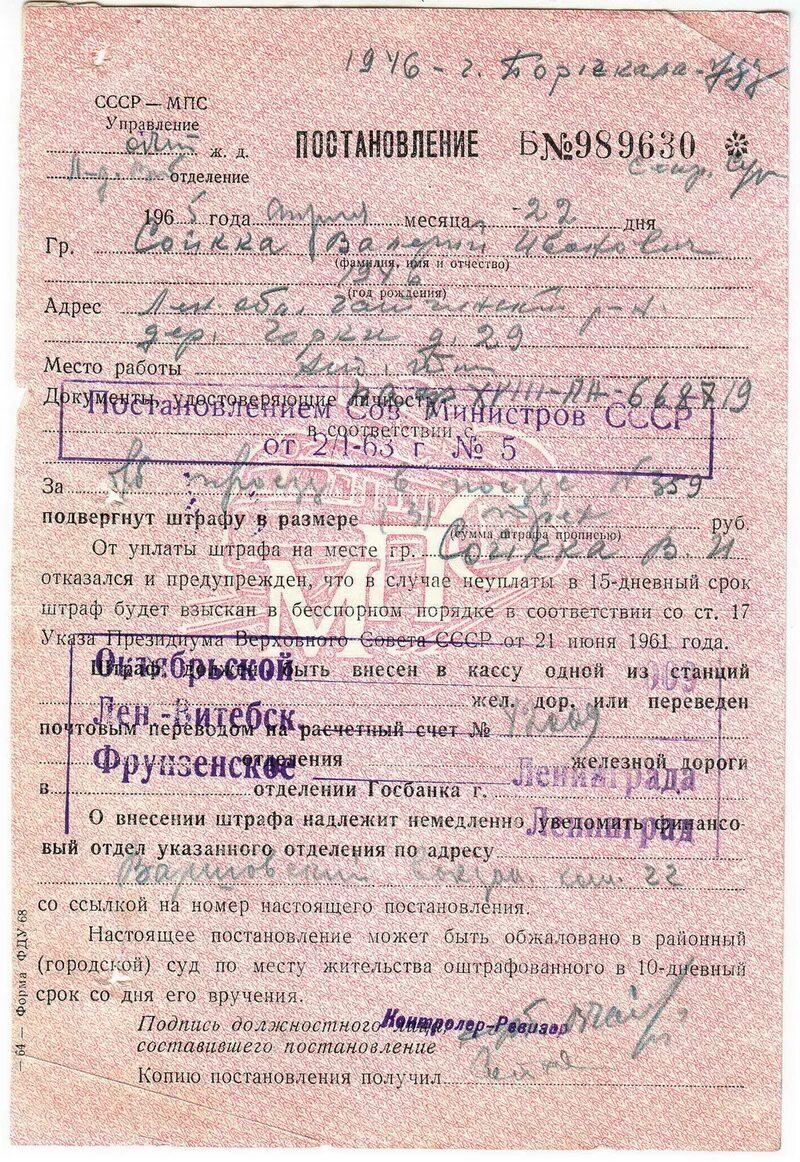 1946 - г.
СССР — МПС
Управление
ж. д.
отделение
ПОСТАНОВЛЕНИЕ Б№989630
1965 года апреля месяца 22 дня
Гр. Сойкка Валерий Иванович
(фамилия, имя и отчество)
1946
(год рождения)
Адрес Лен обл. Гатчинский р-н.
дер. Горки д. 29
Место работы
Документы, удостоверяющие личность XVIII-ПА-668719
Постановлением Сов Министров СССР
в соответствии с
от 2/I-63 г № 5
За проезд в поезде № 359
подвергнут штрафу в размере (3) трех руб.
(сумма штрафа прописью)
От уплаты штрафа на месте гр. Сойкка В. И
отказался и предупрежден, что в случае неуплаты в 15-дневный срок
штраф будет взыскан в бесспорном порядке в соответствии со ст. 17
Указа Президиума Верховного Совета СССР от 21 июня 1961 года.
МПС
Штраф должен быть внесен в кассу одной из станций
Октябрьской
жел. дор. или переведен
Лен.-Витебск.
почтовым переводом на расчетный счет №
Фрунзенское отделения железной дороги
Ленинграда
в отделении Госбанка г.
Ленинград
О внесении штрафа надлежит немедленно уведомить финансо-
вый отдел указанного отделения по адресу
Варшавский вокзал ком. 22
со ссылкой на номер настоящего постановления.
Настоящее постановление может быть обжаловано в районный
(городской) суд по месту жительства оштрафованного в 10-дневный
срок со дня его вручения.
Подпись должностного лица, Контролер-Ревизор
составившего постановление
Копию постановления получил
— 64 — Форма ФДУ 68